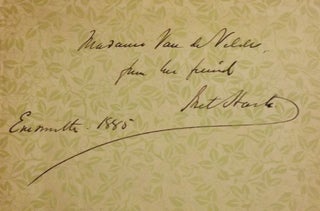 Madame Van de Velde.
from her friend
Bret Harte
1885